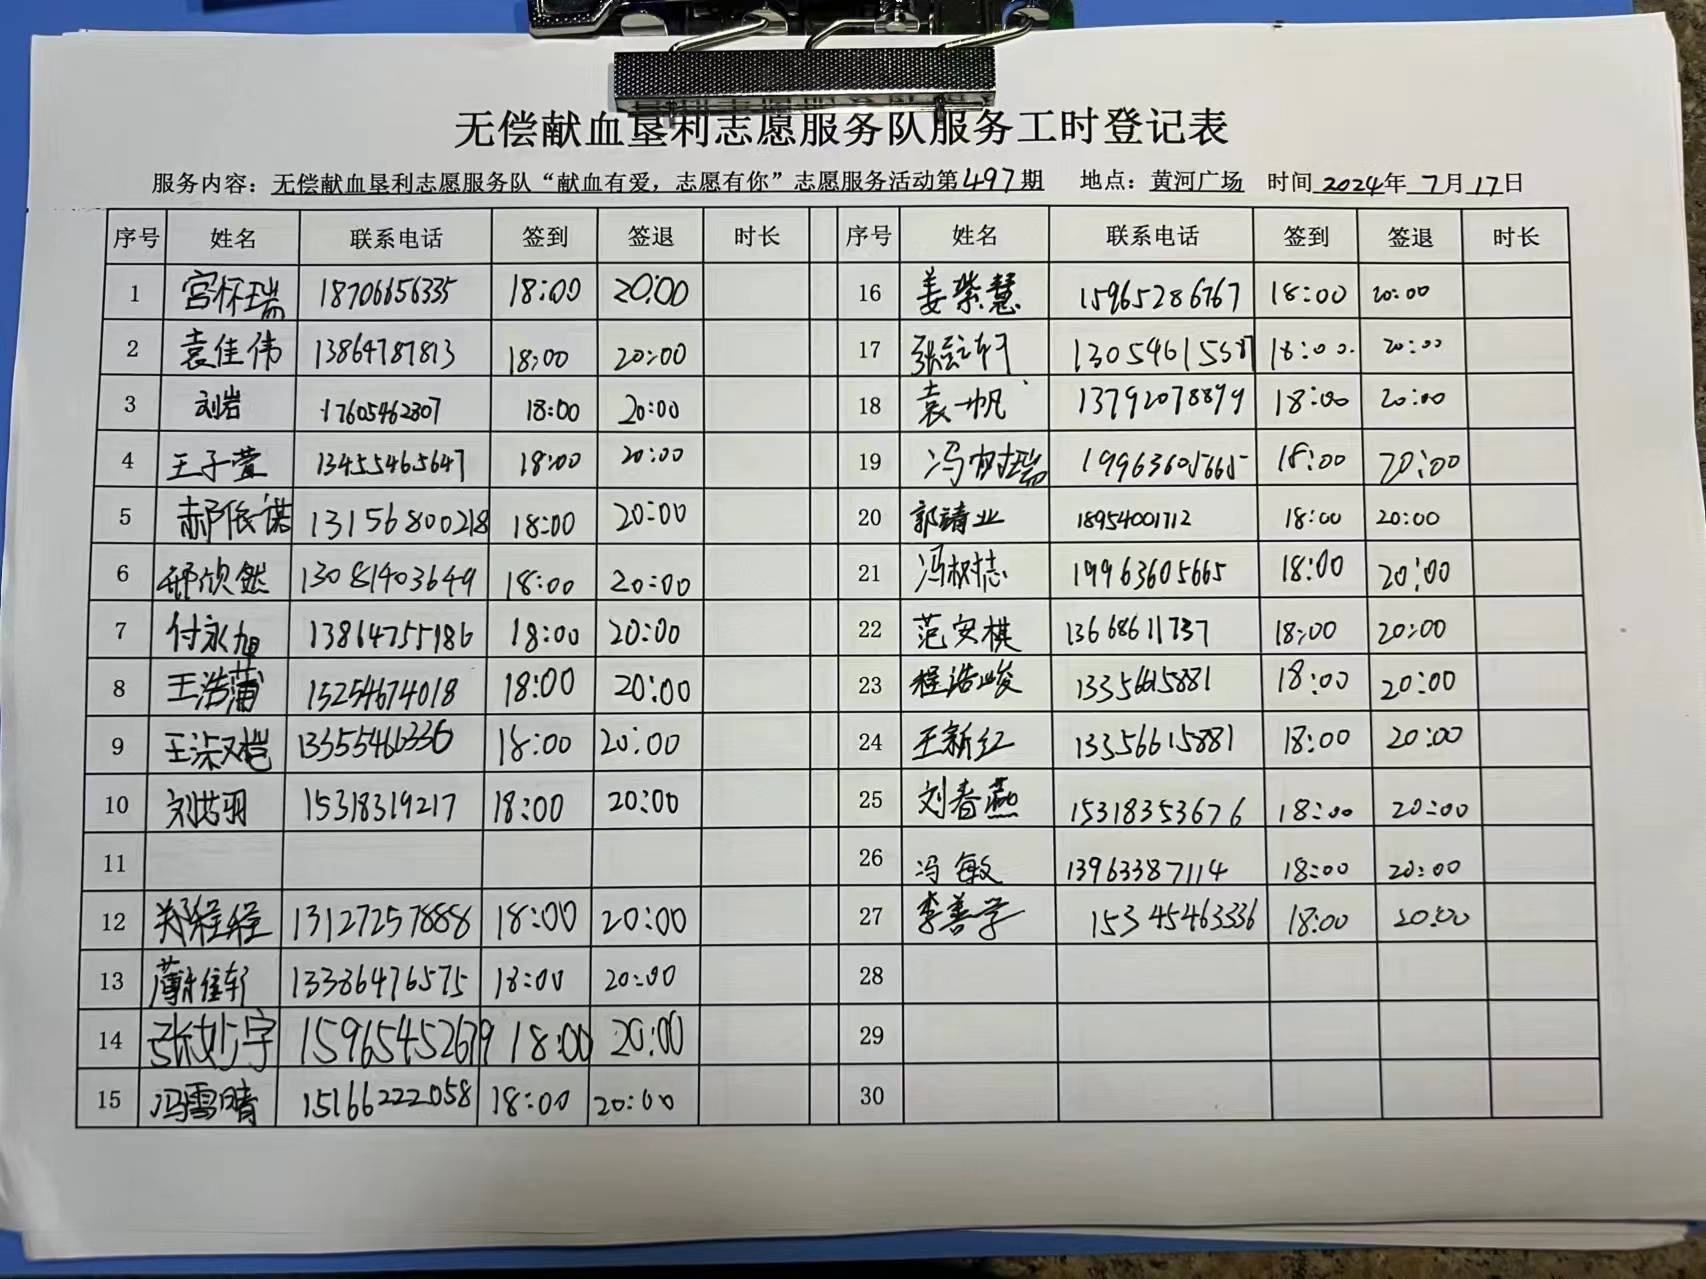 无偿献血垦利志愿服务队服务工时登记表
服务内容：无偿献血垦利志愿服务队“献血有爱，志愿有你”志愿服务活动第497期 地点：黄河广场 时间 2024年 7月17日
序号 姓名 联系电话 签到 签退 时长 序号 姓名 联系电话 签到 签退 时长
1 宫怀瑞 18706656335 18:00 20:00 16 姜紫慧 15965286767 18:00 20:00
2 袁佳伟 13864787813 18:00 20:00 17 18:00 20:00
3 刘岩 17605462807 18:00 20:00 18 袁一帆 13792078899 18:00 20:00
4 王子萱 13455465647 18:00 20:00 19 冯树瑞 19963605665 18:00 20:00
5 郝依诺 13156800218 18:00 20:00 20 郭靖业 18954001712 18:00 20:00
6 邢欣然 13081403649 18:00 20:00 21 冯树志 19963605665 18:00 20:00
7 付永旭 13864755986 18:00 20:00 22 范安棋 13668611737 18:00 20:00
8 王浩蒲 15254674018 18:00 20:00 23 程浩峻 13356615881 18:00 20:00
9 13355466336 18:00 20:00 24 王新红 13356615881 18:00 20:00
10 刘芸羽 15318319217 18:00 20:00 25 刘春燕 15318353676 18:00 20:00
11 26 冯敏 13963387114 18:00 20:00
12 郑程程 13127257888 18:00 20:00 27 李善学 15345463336 18:00 20:00
13 薄佳轩 13386476575 18:00 20:00 28
14 张妙宇 15965452679 18:00 20:00 29
15 冯雪晴 15166222058 18:00 20:00 30